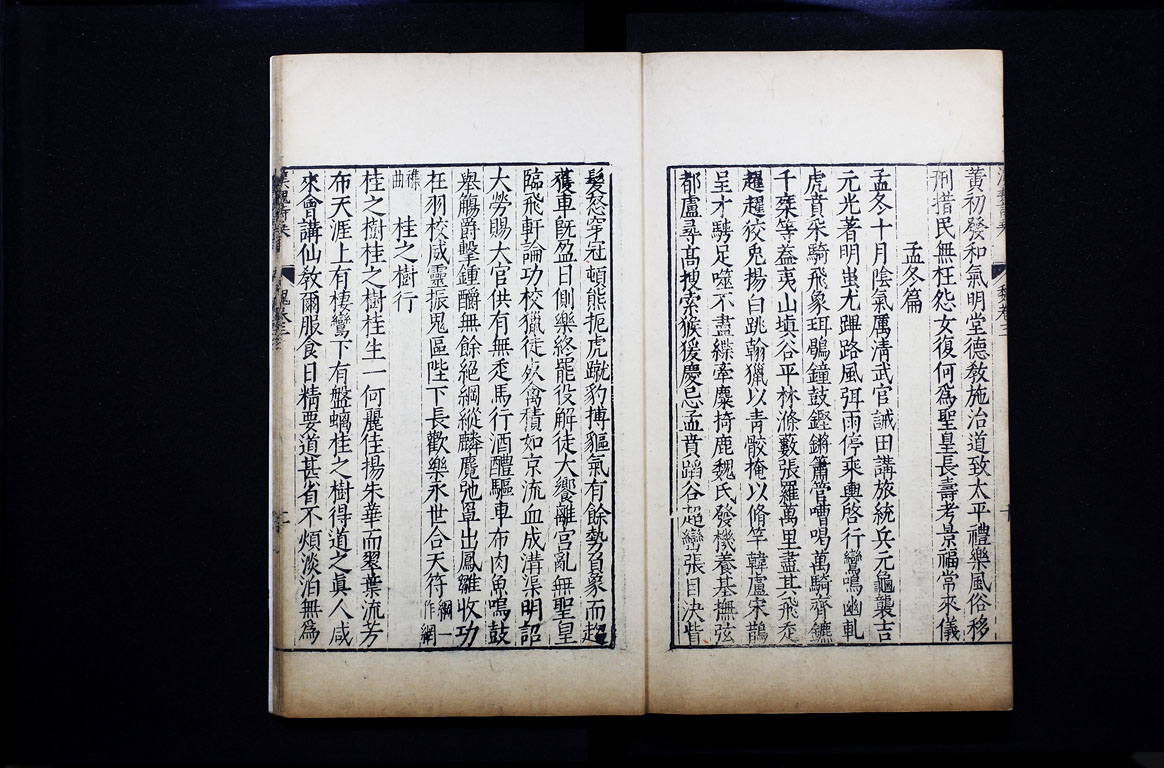 黃初發和氣明堂德教施治道致太平禮樂風俗移
刑措民無枉怨女復何爲聖皇長壽考景福常來儀
孟冬篇
孟冬十月陰氣厲清武官誡田講旅統兵元龜襲吉
元光著明蚩尤蹕路風弭雨停乘輿啓行鸞鳴幽軋
虎賁采騎飛象珥鶡鐘鼓鏗鏘簫管嘈喝萬騎齊鑣
千乗等蓋夷山填谷平林滌藪張羅萬里盡其飛走
趯趯狡兎揚白跳翰獵以青骹掩以脩竿韓盧宋鵲
呈才騁足噬不盡緤牽麋掎鹿魏氏發機養基撫弦
都盧尋髙搜索猴猨慶忌孟賁蹈谷超巒張目決眥
髮怒穿冠頓熊扼虎蹴豹搏貙氣有餘勢負象而趨
獲車旣盈日側樂終罷役解徒大饗離宮亂無聖皇
臨飛軒論功校獵徒死禽積如京流血成溝渠明詔
大勞賜大官供有無走馬行酒醴驅車布肉魚鳴鼓
舉觴爵擊鍾釂無餘絕綱縱麟麑弛罩出鳳雛收功
在羽校威靈振鬼區陛下長歡樂永世合天符綱一作網
桂之樹行
桂之樹桂之樹桂生一何麗佳揚朱華而翠葉流芳
布天涯上有棲鸞下有盤螭桂之樹得道之眞人咸
來會講仙敎爾服食日精要道甚省不煩淡泊無爲